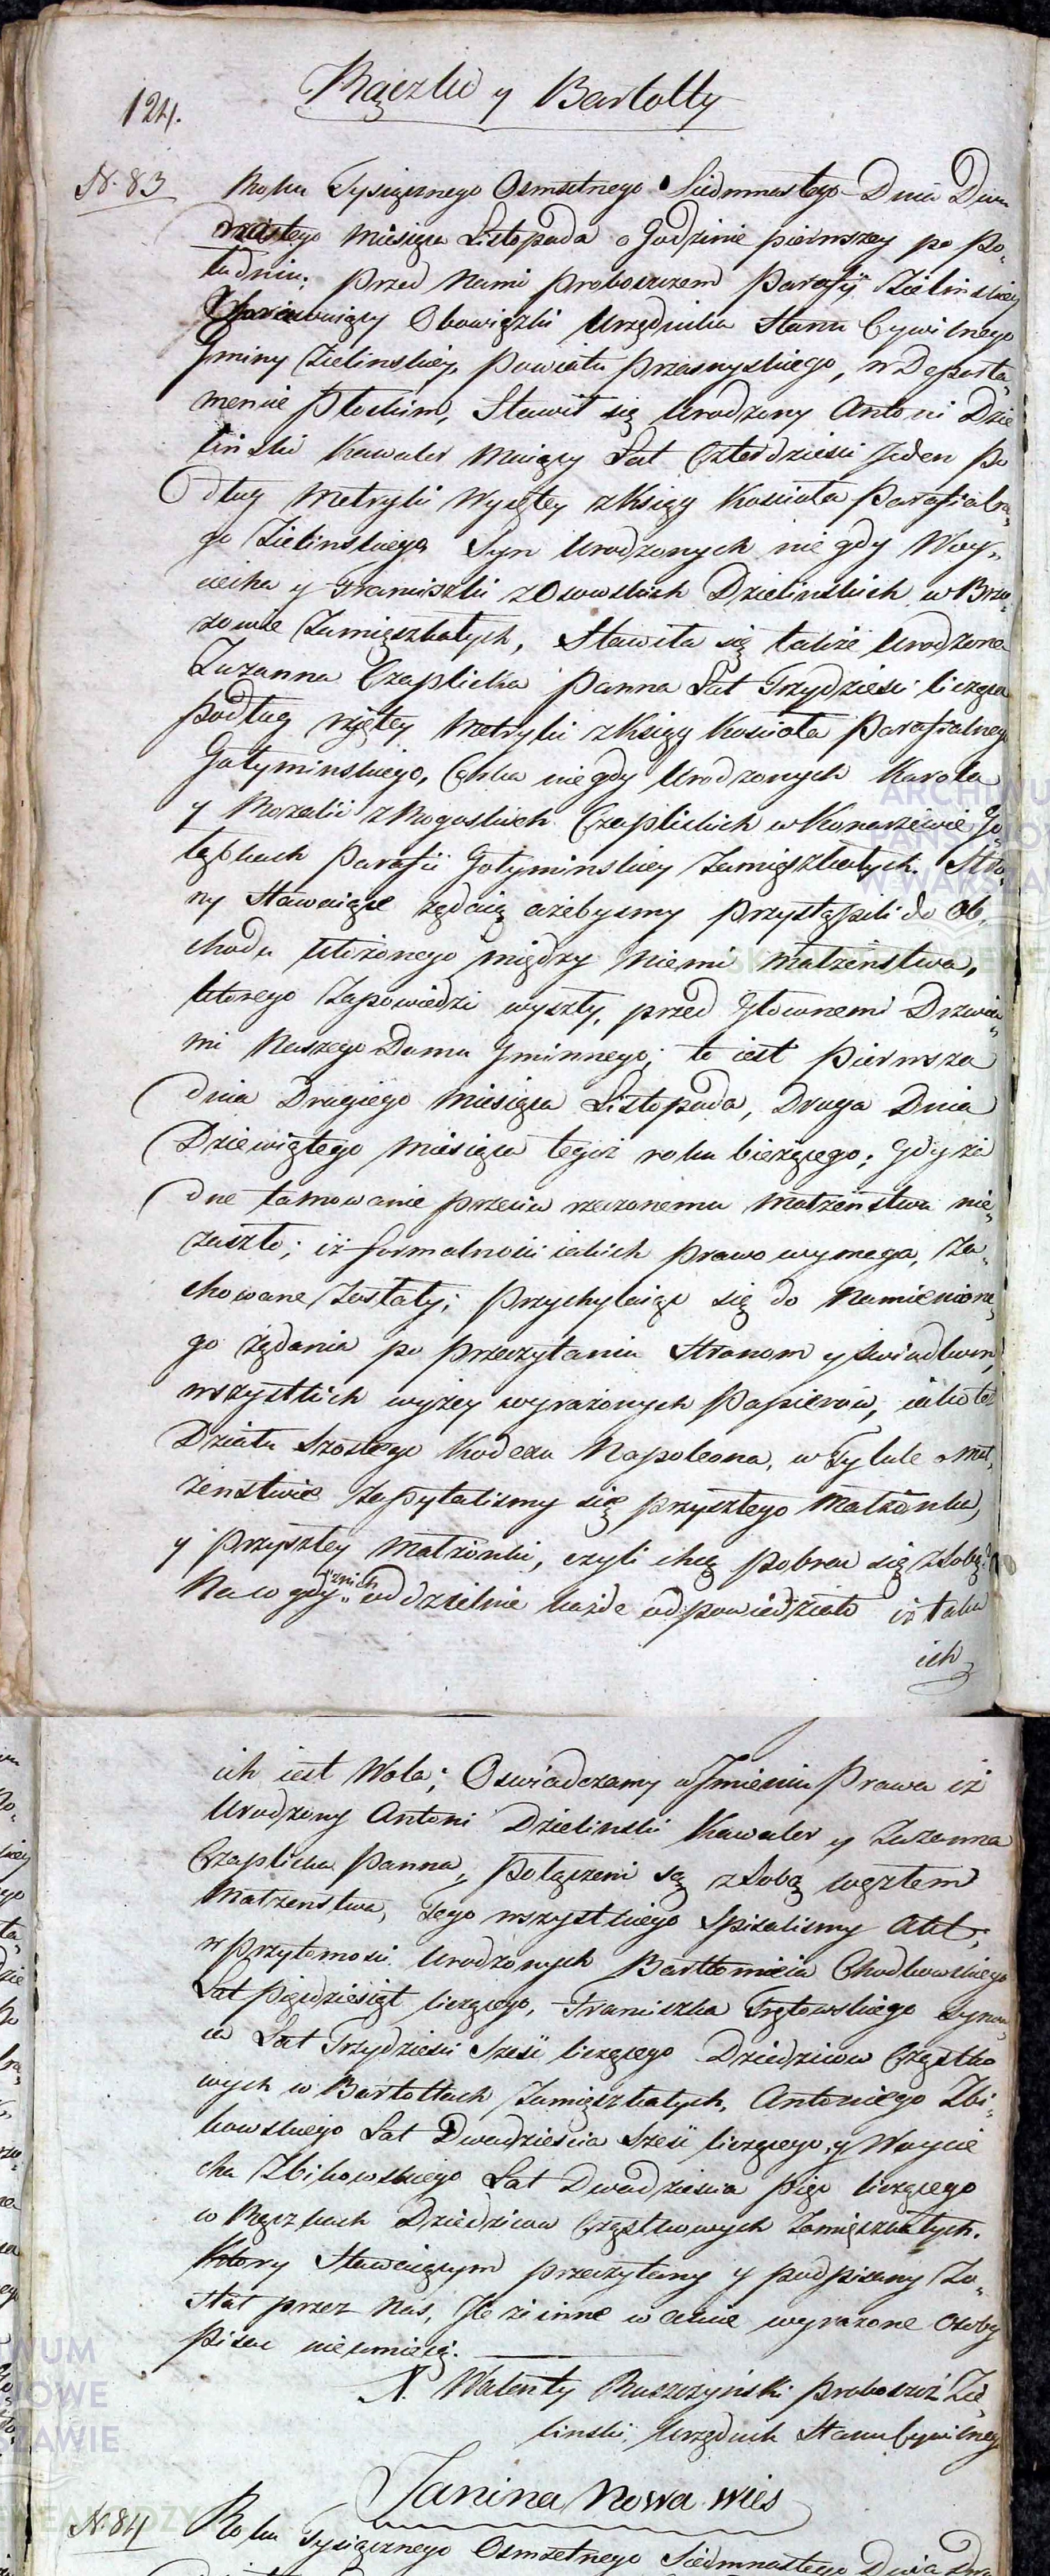 124.
Rączki y Bartołty
N. 83
Roku Tysiącznego Osmsetnego Siedmnastego Dnia Dwu
dziestego Miesiąca Listopada o Godzinie pierwszey po Po„
łudniu; przed Nami Proboszczem Parafij Zielinskiey
Sprawuiący Obowiązki Urzędnika Stanu Cywilnego
Gminy Zielinskiey, Powiatu Przasnyskiego, w Departa„
mencie Płockim, Stawił się Urodzony Antoni Dzie
linski Kawaler Maiący Lat Czterdziesci Jeden po
dług Metryki Wyiętey z Księgi Koscioła Parafialne„
go Zielinskiego Syn Urodzonych niegdy Woy„
ciecha y Franciszki z Osowskich Dzielinskich w
Zamięszkałych, Stawiła się także Urodzona
Zuzanna Czaplicka Panna Lat Trzydziesci licząca
podług wyiętey Metryki z Księgi Koscioła Parafialnego
Gołyminskiego, Córka niegdy Urodzonych Karola
y Rozalii z Rogoskich Czaplickich w Konarzewie Go„
łąbkach Parafii Gołyminskiey Zamięszkałych. Stro„
ny Stawaiące żądaią ażebysmy przystąpili do Ob„
chodu ułożonego między Niemi małżeństwa,
którego Zapowiedzi wyszły, przed Głownemi Drzwia„
mi Naszego Domu Gminnego; to iest Pierwsza
dnia Drugiego Miesiąca Listopada, Druga Dnia
Dziewiątego Miesiąca tegoż roku bieżącego; Gdy ża
dne tamowanie przeciw rzeczonemu Małżeństwu nie„
zaszło; iż formalnosci iakich prawo wymaga, za„
chowane Zostały; przychylaiąc się do Namienione„
go żądania po przeczytaniu Stronom y Swiadkom,
wszystkich wyżey wyrażonych Papierów, iako też
Działu Szostego Kodexu Napoleona, w Tytule o Mał„
żenstwie Zapytalismy się przyszłego Małżonka,
y przyszłey Małżonki, czyli chcą pobrać się z Sobą?
Na co gdy z nich oddzielnie każde odpowiedziało iż taka
ich
ich iest Wola; Oswiadczamy w Jmieniu Prawa iż
Urodzony Antoni Dzielinski Kawaler y Zuzanna
Czaplicka Panna, Połączeni są z Sobą węzłem
Małżenstwa, Tego wszystkiego Spisalismy Akt;
w przytomosci Urodzonych Bartłomieia Chodkowskiego
Lat Pięćdziesiąt liczącego, Franciszka Synow„
ca Lat Trzydziesci Sześć liczącego Dziedziców Cząstko
wych w Bartołtach Zamięszkałych, Antoniego Zbi„
kowskiego Lat Dwadziescia Sześć liczącego, y Woycie
cha Zbikowskiego Lat Dwadziescia Pięć liczącego
w Rączkach Dziedziców Cząstkowych Zamięszkałych.
Który Stawaiącym przeczytany y podpisany Zo„
stał przez Nas, Gdy że inne w akcie wyrażone Osoby
pisać nieumieią.
X. Walenty Ruszczyński proboszcz Zie„
linski, Urzędnik Stanu Cywilneg
Janina Nowa wies
N. 84
Roku Tysiącznego Osmsetnego Siedmnastego Dnia